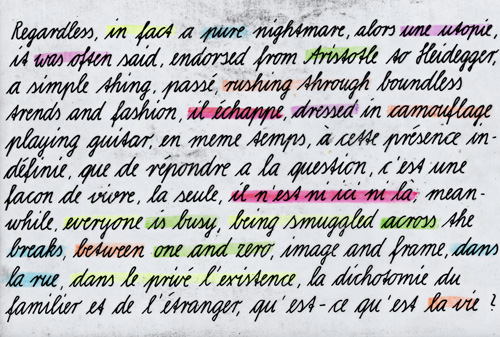 Regardless, in fact a pure nightmare, alors une utopie,
it was often said, endorsed from Aristotle to Heidegger,
a simple thing, passé, rushing through boundless
trends and fashion, il échappe, dressed in camouflage
playing guitar, en meme temps, à cette présence in-
définie, que de répondre a la question, c'est une
façon de vivre, la seule, il n'est ni ici ni là, mean-
while, everyone is busy, being smuggled across the
breaks, between one and zero, image and frame, dans
la rue, dans le privé l'existence, la dichotomie du
familier et de l'étranger, qu'est-ce qu'est la vie ?